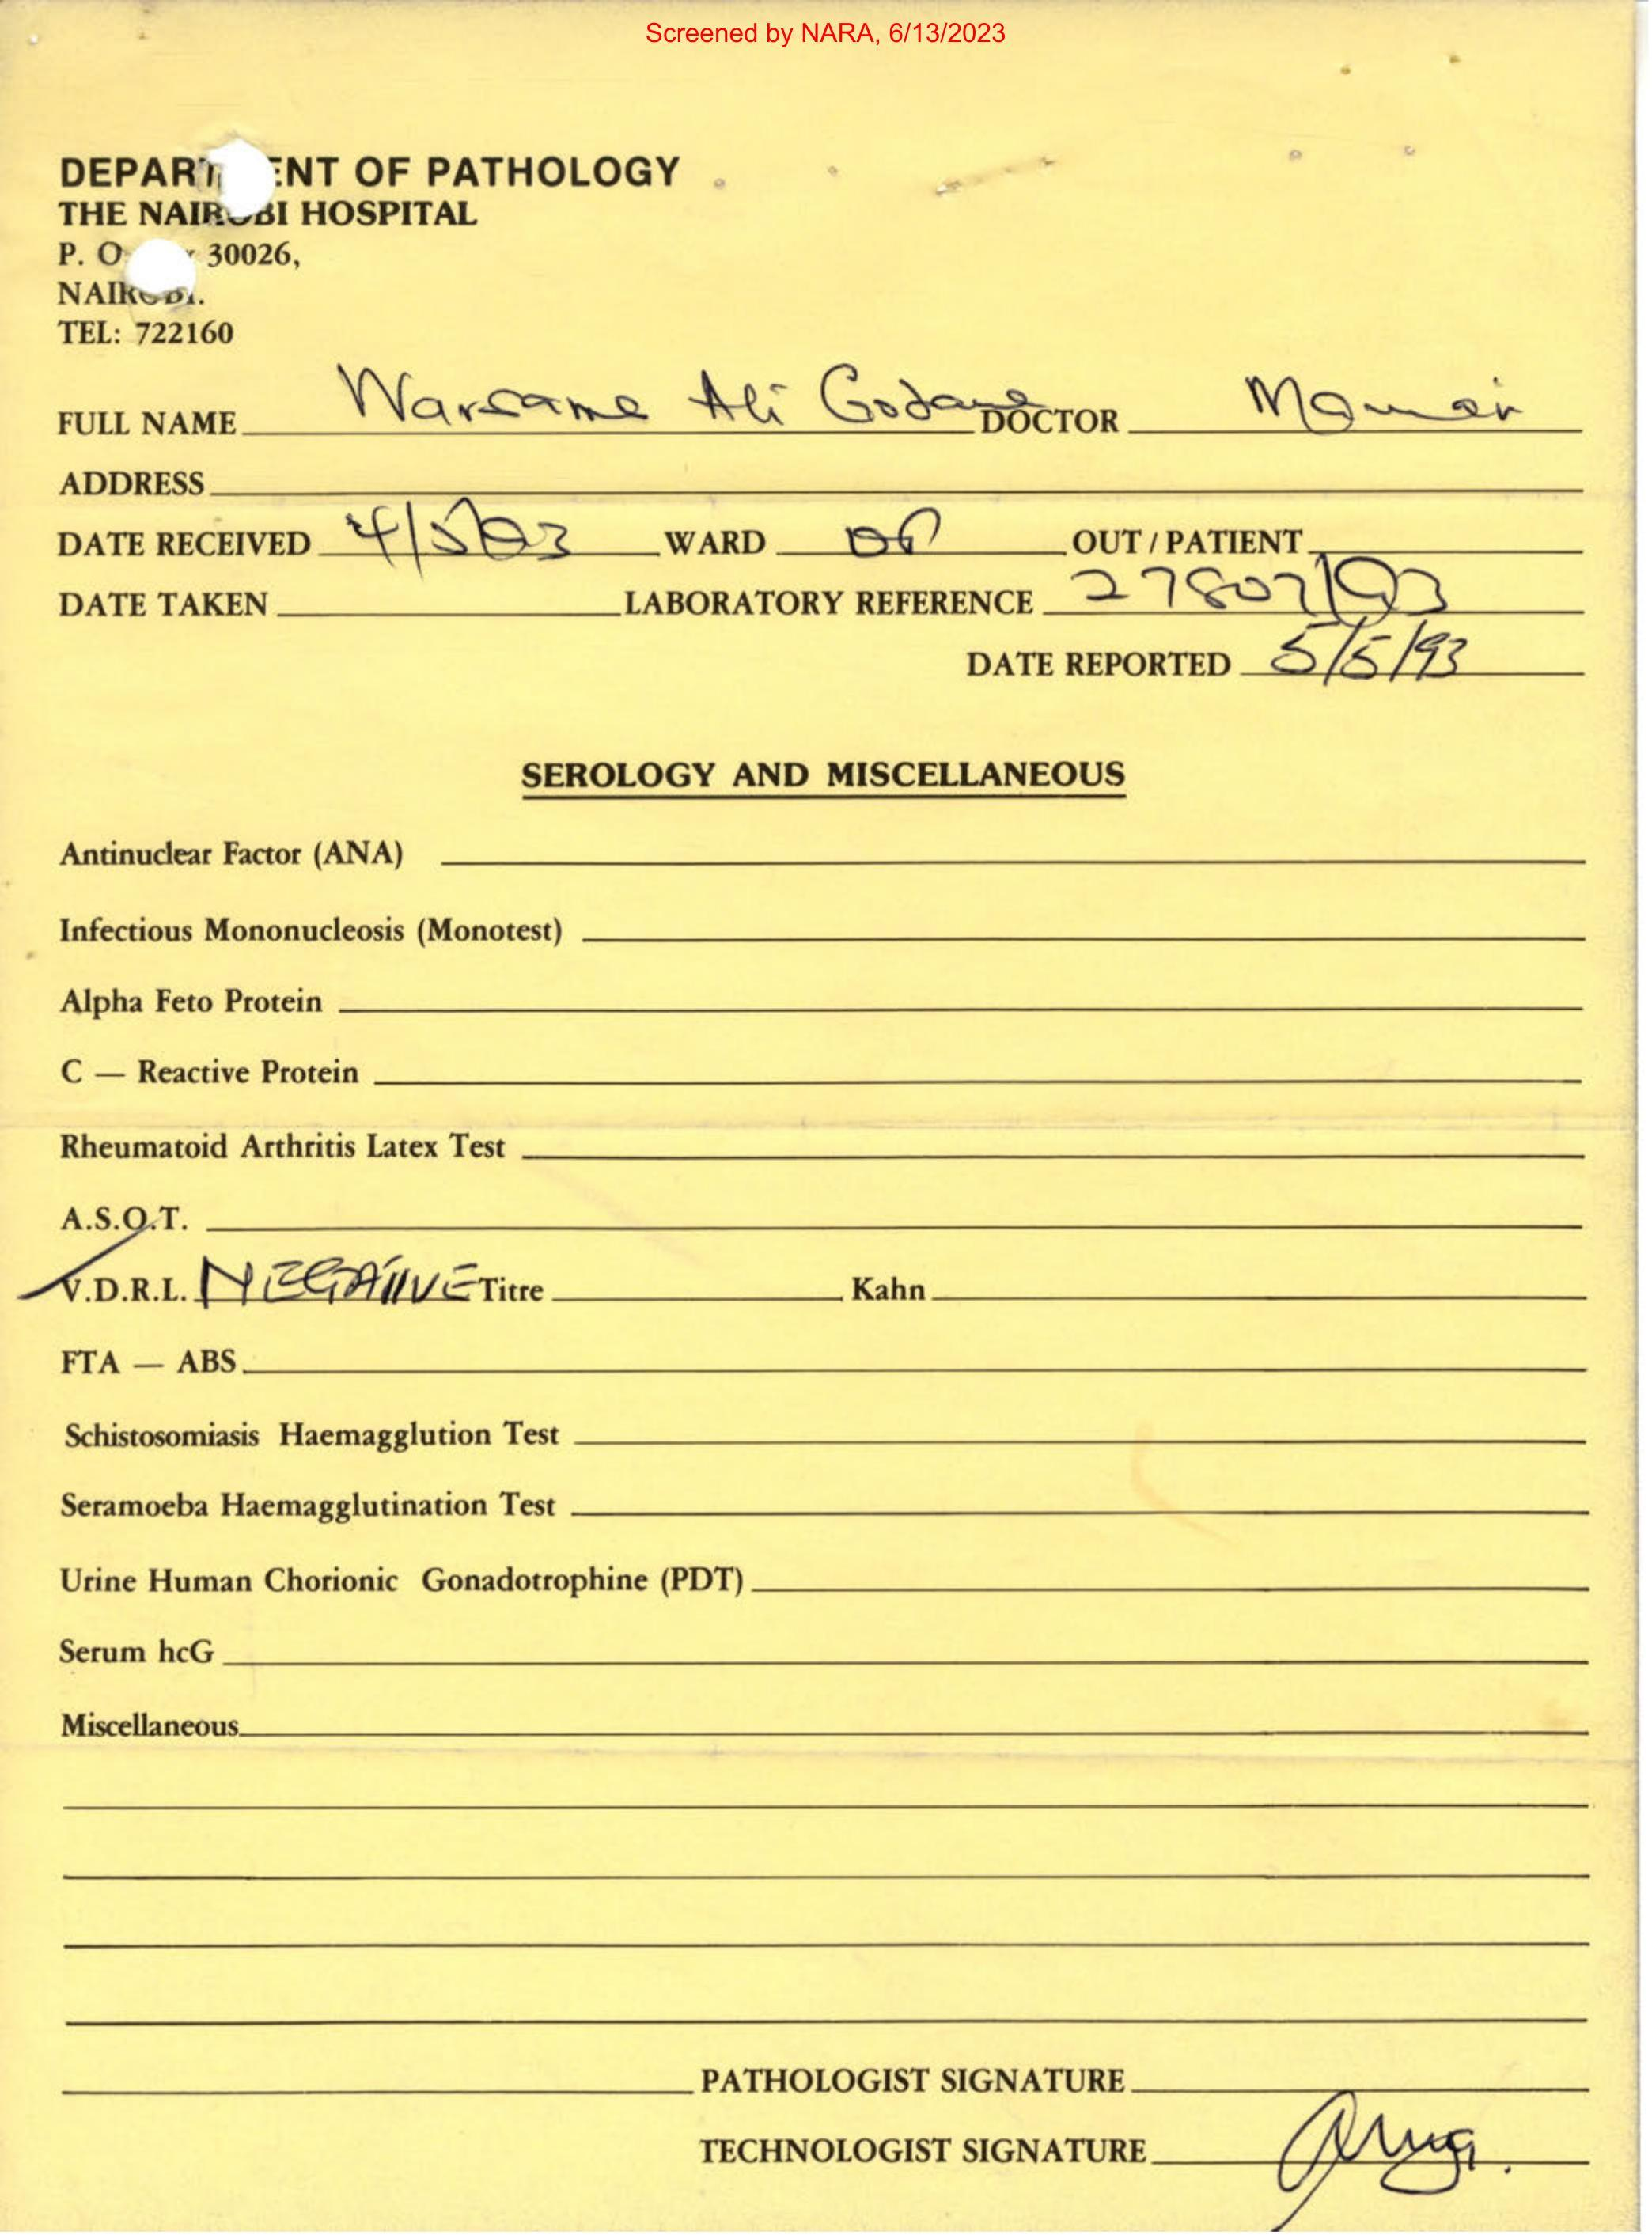 Screened by NARA, 6/13/2023
DEPART ENT OF PATHOLOGY
THE NAIROBI HOSPITAL
P. O 30026,
NAIROBI.
TEL: 722160
FULL NAME Warsame Ali Godane DOCTOR
ADDRESS
DATE RECEIVED 4/5/93 WARD OP OUT / PATIENT
DATE TAKEN LABORATORY REFERENCE 27807/93
DATE REPORTED 5/5/93
SEROLOGY AND MISCELLANEOUS
Antinuclear Factor (ANA)
Infectious Mononucleosis (Monotest)
Alpha Feto Protein
C — Reactive Protein
Rheumatoid Arthritis Latex Test
A.S.O.T.
V.D.R.L. NEGATIVE Titre Kahn
FTA — ABS
Schistosomiasis Haemagglution Test
Seramoeba Haemagglutination Test
Urine Human Chorionic Gonadotrophine (PDT)
Serum hcG
Miscellaneous
PATHOLOGIST SIGNATURE
TECHNOLOGIST SIGNATURE